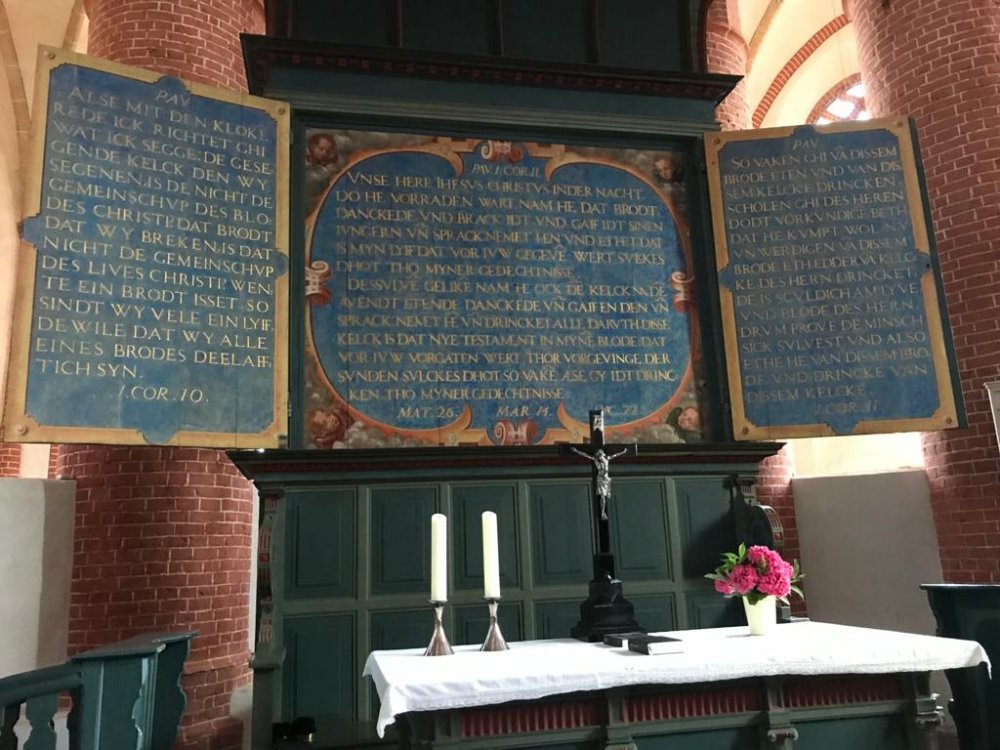 PAV
ALSE MIT DEN KLOKE
REDE ICK RICHTET GHI
WAT ICK SEGGE: DE GESE¯
GENDE KELCK DEN WY
SEGENEN, IS DE NICHT DE
GEMEINSCHVP DES BLO¯
DES CHRISTI? DAT BRODT
DAT WY BREKEN, IS DAT
NICHT DE GEMEINSCHVP
DES LIVES CHRISTI? WEN¯
TE EIN BRODT ISSET. SO
SINDT WY VELE EIN LYF,
DEWILE DAT WY ALLE
EINES BRODES DEELAFF¯
TICH SYN.
1.COR. 10.
PAV 1.COR.11.
VNSE HERE IHESVS CHRISTVS IN DER NACHT,
DO HE VORRADEN WART, NAM HE DAT BRODT,
DANCKEDE VND BRACK IDT VND GAFF IDT SINEN
IVNGERN VN̄ SPRACK, NEMET HEN VND ETHET, DAT
IS MYN LYF DAT VOR IVW GEGEVĒ WERT SVLKES
DHOT THO MYNER GEDECHTNISSE.
DESSVLVĒ GELIKE NAM HE OCK DE KELCK NA DĒ
AVENDT ETENDE DANCKEDE VN̄ GAFF EN DEN VN̄
SPRACK, NEMET HĒ VN̄ DRINCKET ALLE DARVTH, DISSE
KELCK IS DAT NYE TESTAMENT IN MYNĒ BLODE DAT
VOR IVW VORGATEN WERT THOR VORGEVINGE DER
SVNDEN SVLCKES DHOT SO VAKĒ ALSE GY IDT DRINC¯
KEN THO MYNER GEDECHTNISSE.
MAT. 26. MAR. 14. LVC. 22.
PAV
SO VAKEN GHI VĀ DISSEM
BRODE ETEN VND VAN DIS¯
SEM KELCKE DRINCKEN,
SCHOLEN GHI DES HEREN
DODT VORKVNDIGĒ BETH
DAT HE KVMPT WOL NV
VN WERDIGEN VĀ DISSEM
BRODE ETH, EDDER VĀ KELC¯
KE DES HEREN DRINCKET
DE IS SCVLDICH AM LYVE
VND BLODE DES HEREN
DRVM PROVE DE MINSCH
SICK SVLVEST VND ALSO
ETHE HE VAN DISSEM BRO¯
DE VND DRINCKE VAN
DISSEM KELCKE.
1.COR. 11